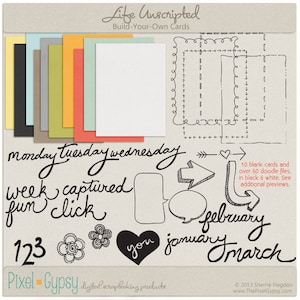 Life Unscripted
Build-Your-Own Cards
monday tuesday wednesday
10 blank cards and
over 60 doodle files,
in black & white. See
additional previews.
week captured
fun click
february
january
march
123
you
Pixel Gypsy
digital scrapbooking products
© 2013 Sherrie Negdeo
www.ThePixelGypsy.com